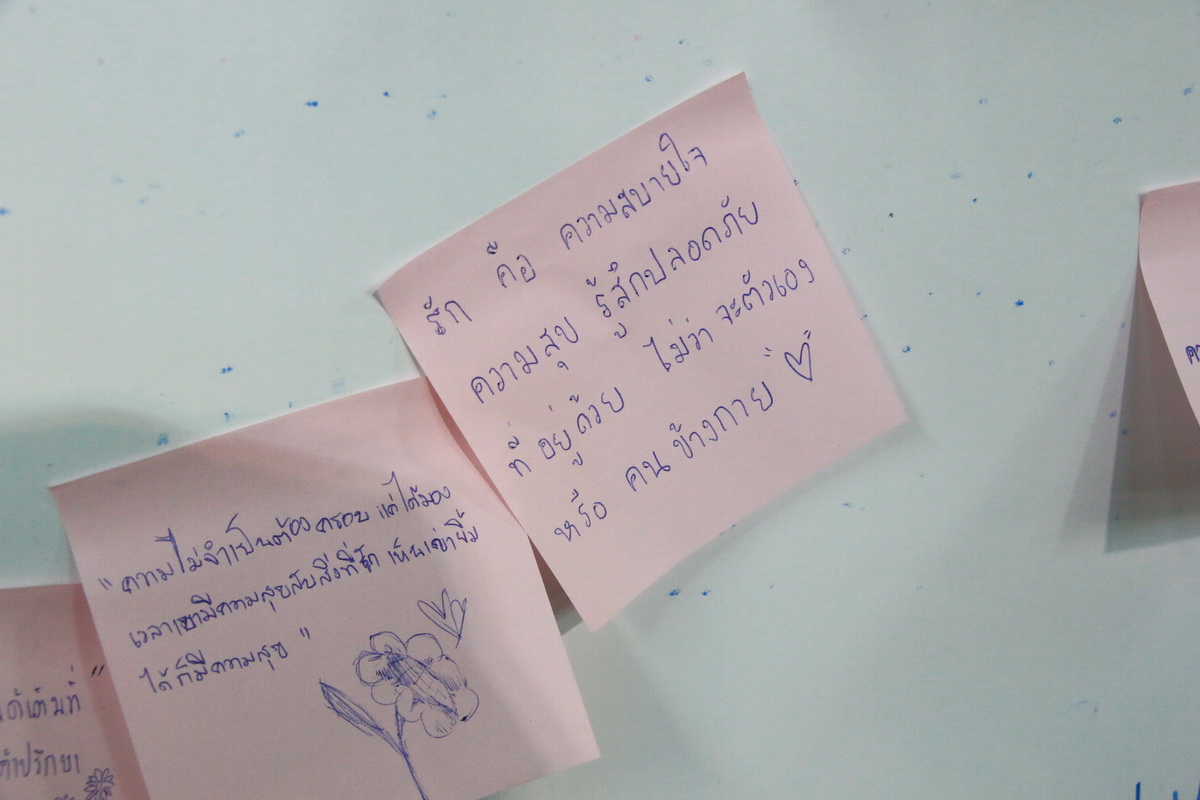 รัก คือ ความสบายใจ
ความสุข รู้สึกปลอดภัย
ที่อยู่ด้วย ไม่ว่าจะตัวเอง
หรือ คนข้างกาย
"ความไม่จำเป็นต้องครอบ แค่ได้มอง
เวลาเขามีความสุขกับสิ่งที่รัก เห็นเขายิ้ม
ได้ก็มีความสุข"